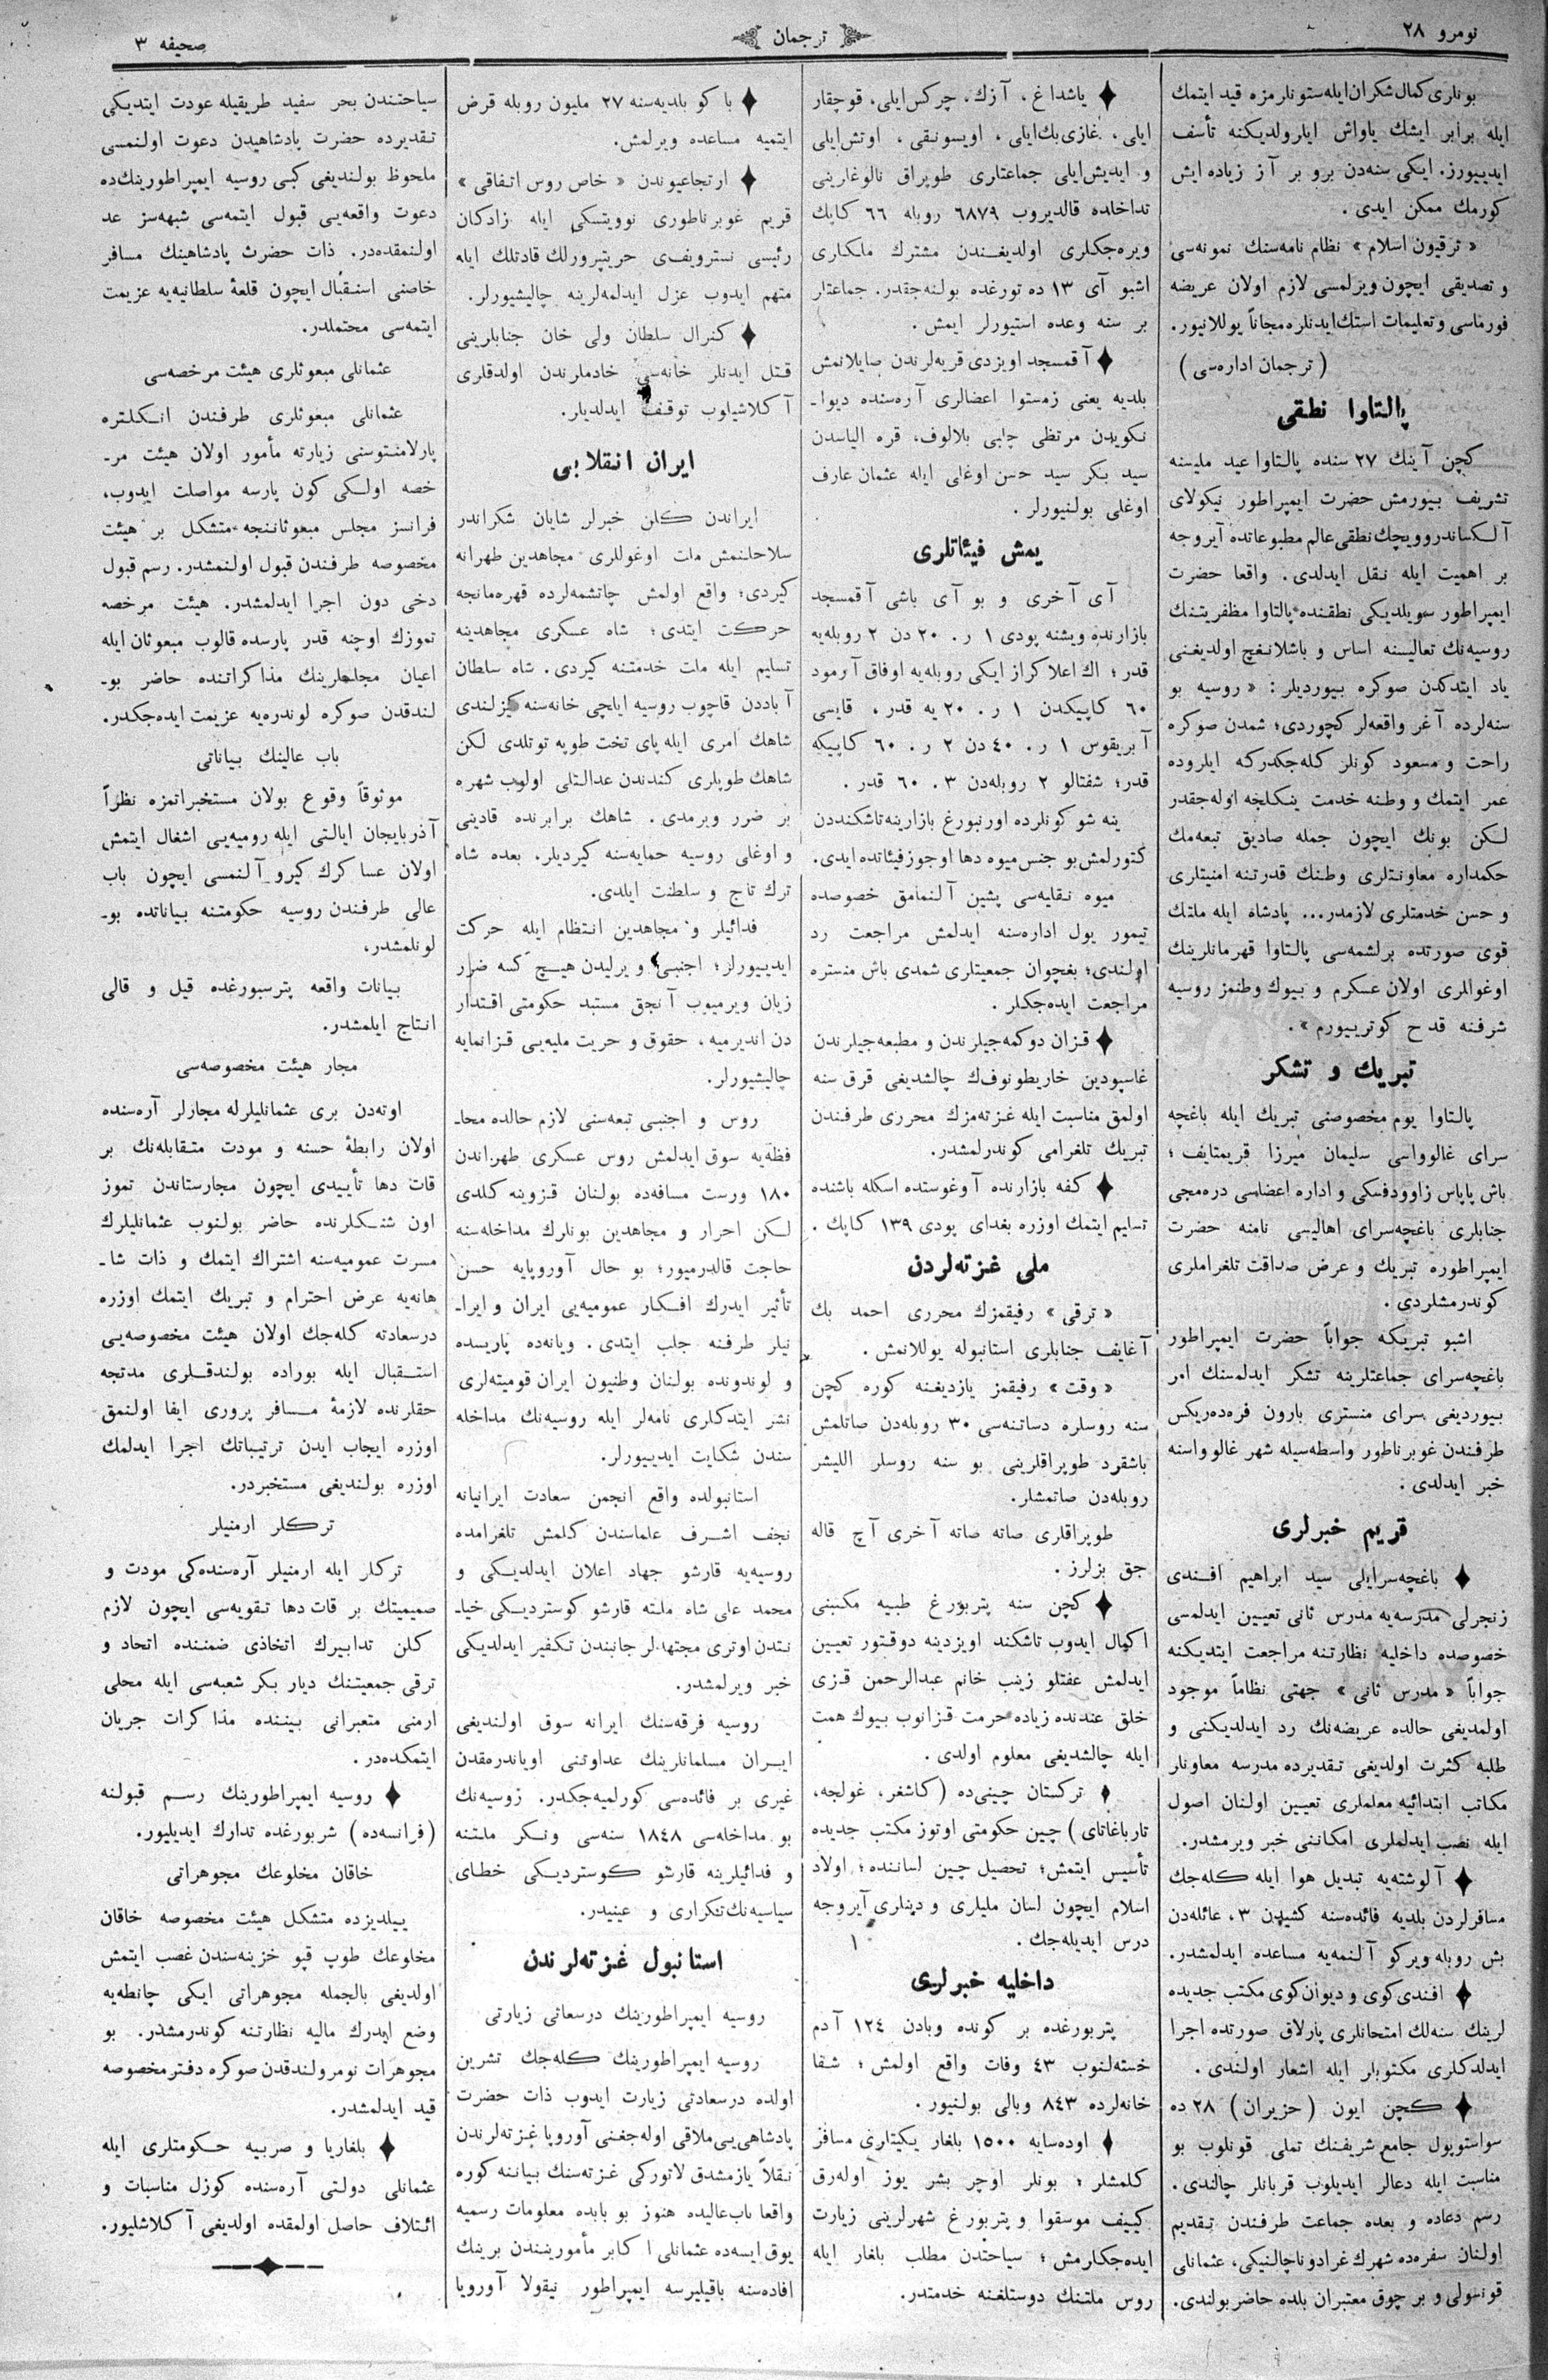 نومرو ٢٨
ترجمان
صحيفه ٣
بونلرى كمال شكران ايله ستونلرمزه قيد ايتمك
ايله برابر ايشك ياواش ايلرولديكنه تأسف
ايدييورز. ايكى سنه‌دن برو بر آز زياده ايش
كورمك ممكن ايدى .
« ترقيون اسلام » نظام نامه‌سنك نمونه‌سى
و تصديقى ايچون ويرلمسى لازم اولان عريضه
فورماسى و تعليمات استك ايدنلره مجاناً يوللانيور.
( ترجمان اداره‌سى )
پالتاوا نطقى
كچن آينك ٢٧ سنده پالتاوا عيد مليسنه
تشريف بيورمش حضرت ايمپراطور نيكولاى
آلكساندروويچك نطقى عالم مطبوعاتده آيروجه
بر اهميت ايله نقل ايدلدى. واقعا حضرت
ايمپراطور سويلديكى نطقنده پالتاوا مظفريتنك
روسيه‌نك تعاليسنه اساس و باشلانغچ اولديغنى
ياد ايتدكدن صوكره بيورديلر : « روسيه بو
سنه‌لرده آغر واقعه‌لر كچوردى؛ شمدن صوكره
راحت و مسعود كونلر كله‌جكدركه ايلروده
عمر ايتمك و وطنه خدمت ينكلجه اوله‌جقدر
لكن بونك ايچون جمله صاديق تبعه‌مك
حكمداره معاونتلرى وطنك قدرتنه امنيتلرى
و حسن خدمتلرى لازمدر... پادشاه ايله ملتك
قوى صورتده برلشمه‌سى پالتاوا قهرمانلرينك
اوغوللرى اولان عسكرم و بيوك وطنمز روسيه
شرفنه قدح كوتريييورم ».
تبريك و تشكر
پالتاوا يوم مخصوصنى تبريك ايله باغچه
سراى غالوواسى سليمان ميرزا قريمتايف ؛
باش پاپاس زاوودفسكى و اداره اعضاسى دره‌مجى
جنابلرى باغچه‌سراى اهاليسى نامنه حضرت
ايمپراطوره تبريك و عرض صداقت تلغراملرى
كوندرمشلردى .
اشبو تبريكه جواباً حضرت ايمپراطور
باغچه‌سراى جماعتلرينه تشكر ايدلمسنك امر
بيورديغى سراى منسترى بارون فره‌ده‌ريكس
طرفندن غوبرناطور واسطه‌سيله شهر غالوواسنه
خبر ايدلدى .
قريم خبرلرى
باغچه‌سرايلى سيد ابراهيم افندى
زنجرلى مدرسه‌يه مدرس ثانى تعيين ايدلمسى
خصوصده داخليه نظارتنه مراجعت ايتديكنه
جواباً « مدرس ثانى » جهتى نظاماً موجود
اولمديغى حالده عريضه‌نك رد ايدلديكنى و
طلبه كثرت اولديغى تقديرده مدرسه معاونلر
مكاتب ابتدائيه معلملرى تعيين اولنان اصول
ايله نصب ايدلملرى امكاننى خبر ويرمشدر.
آلوشته‌يه تبديل هوا ايله كله‌جك
مسافرلردن بلديه فائده‌سنه كشيدن ٣، عائله‌دن
بش روبله ويركو آلنمه‌يه مساعده ايدلمشدر.
افندى‌كوى و ديوان‌كوى مكتب جديده
لرينك سنه‌لك امتحانلرى پارلاق صورتده اجرا
ايدلدكلرى مكتوبلر ايله اشعار اولندى .
كچن ايون ( حزيران ) ٢٨ ده
سواستوپول جامع شريفنك تملى قونلوب بو
مناسبت ايله دعالر ايديلوب قربانلر چالندى .
رسم دعاده و بعده جماعت طرفندن تقديم
اولنان سفره‌ده شهرك غرادوناچالنيكى، عثمانلى
قونسولى و بر چوق معتبران بلده حاضر بولندى.
ياشداغ ، آزك، چركس‌ايلى، قوچقار
ايلى ، غازى‌بك‌ايلى ، اويسونقى ، اوتش‌ايلى
و ايديش‌ايلى جماعتلرى طوپراق نالوغارينى
تداخلده قالديروب ٦٨٧٩ روبله ٦٦ كاپك
ويره‌جكلرى اولديغندن مشترك ملكلرى
اشبو آى ١٣ ده تورغده بولنه‌جقدر. جماعتلر
بر سنه وعده استيورلر ايمش .
آقمسجد اويزدى قريه‌لرندن صايلانمش
بلديه يعنى زمستوا اعضالرى آره‌سنده ديوا-
نكويدن مرتظى چلبى بلالوف، قره الياسدن
سيد بكر سيد حسن اوغلى ايله عثمان عارف
اوغلى بولنيورلر .
يمش فيئاتلرى
آى آخرى و بو آى باشى آقمسجد
بازارنده ويشنه پودى ١ ر. ٢٠ دن ٢ روبله‌يه
قدر ؛ اك اعلا كراز ايكى روبله‌يه اوفاق آرمود
٦٠ كاپيكدن ١ ر. ٢٠ يه قدر ، قايسى
آبريقوس ١ ر. ٤٠ دن ٢ ر. ٦٠ كاپيكه
قدر؛ شفتالو ٢ روبله‌دن ٣. ٦٠ قدر .
ينه شو كونلرده اورنبورغ بازارينه تاشكنددن
كتورلمش بو جنس ميوه دها اوجوز فيئاتده ايدى.
ميوه نقليه‌سى پشين آلنمامق خصوصده
تيمور يول اداره‌سنه ايدلمش مراجعت رد
اولندى؛ بغچوان جمعيتلرى شمدى باش منستره
مراجعت ايده‌جكلر .
قزان دوكمه‌جيلرندن و مطبعه‌جيلرندن
غاسپودين خاريطونوفك چالشديغى قرق سنه
اولمق مناسبت ايله غزته‌مزك محررى طرفندن
تبريك تلغرامى كوندرلمشدر.
كفه بازارنده آوغوستده اسكله باشنده
تسليم ايتمك اوزره بغداى پودى ١٣٩ كاپك .
ملى غزته‌لردن
« ترقى » رفيقمزك محررى احمد بك
آغايف جنابلرى استانبوله يوللانمش .
« وقت » رفيقمز يازديغنه كوره كچن
سنه روسلره دساتنه‌سى ٣٠ روبله‌دن صاتلمش
باشقرد طوپراقلرينى بو سنه روسلر ألليشر
روبله‌دن صاتمشلر.
طوپراقلرى صاته صاته آخرى آچ قاله
جق بزلرز .
كچن سنه پتربورغ طبيه مكتبنى
اكمال ايدوب تاشكند اويزدينه دوقتور تعيين
ايدلمش عفتلو زينب خانم عبدالرحمن قزى
خلق عندنده زياده حرمت قزانوب بيوك همت
ايله چالشديغى معلوم اولدى .
تركستان چينى‌ده ( كاشغر، غولجه،
تارباغاتاى ) چين حكومتى اوتوز مكتب جديده
تأسيس ايتمش؛ تحصيل چين لساننده؛ اولاد
اسلام ايچون لسان مليلرى و دينلرى آيروجه
درس ايديله‌جك .
داخليه خبرلرى
پتربورغده بر كونده وبادن ١٢٤ آدم
خسته‌لنوب ٤٣ وفات واقع اولمش ؛ شفا
خانه‌لرده ٨٤٣ وبالى بولنيور .
اوده‌سايه ١٥٠٠ بلغار يكيتلرى مسافر
كلمشلر ؛ بونلر اوچر بشر يوز اوله‌رق
كييف موسقوا و پتربورغ شهرلرينى زيارت
ايده‌جكلرمش ؛ سياحتدن مطلب بلغار ايله
روس ملتنك دوستلغنه خدمتدر.
باكو بلديه‌سنه ٢٧ مليون روبله قرض
ايتميه مساعده ويرلمش.
ارتجاعيوندن « خاص روس اتفاقى »
قريم غوبرناطورى نوويتسكى ايله زادكان
رئيسى نسترويف‌ى حريتپرورلك قادتلك ايله
متهم ايدوب عزل ايدلمه‌لرينه چاليشيورلر.
كنرال سلطان ولى خان جنابلرينى
قتل ايدنلر خانه‌سى خادملرندن اولدقلرى
آكلاشيلوب توقيف ايدلديلر.
ايران انقلابى
ايراندن كلن خبرلر شايان شكراندر
سلاحلنمش ملت اوغوللرى مجاهدين طهرانه
كيردى؛ واقع اولمش چاتشمه‌لرده قهرمانجه
حركت ايتدى؛ شاه عسكرى مجاهدينه
تسليم ايله ملت خدمتنه كيردى. شاه سلطان
آباددن قاچوب روسيه ايلچى خانه‌سنه كيزلندى
شاهك امرى ايله پاى تخت طوپه توتلدى لكن
شاهك طوپلرى كندندن عدالتلى اولوب شهره
بر ضرر ويرمدى. شاهك برابرنده قادينى
و اوغلى روسيه حمايه‌سنه كيرديلر. بعده شاه
ترك تاج و سلطنت ايلدى.
فدائيلر و مجاهدين انتظام ايله حركت
ايدييورلر؛ اجنبى و يرليدن هيچ كسه ضرر
زيان ويرميوب آنجق مستبد حكومتى اقتدار
دن انديرميه ، حقوق و حريت مليه‌يى قزانمايه
چاليشيورلر.
روس و اجنبى تبعه‌سنى لازم حالده محا-
فظه‌يه سوق ايدلمش روس عسكرى طهراندن
١٨٠ ورست مسافه‌ده بولنان قزوينه كلدى
لكن احرار و مجاهدين بونلرك مداخله‌سنه
حاجت قالدرميور؛ بو حال آوروپايه حسن
تأثير ايدرك افكار عموميه‌يى ايران و ايرا-
نيلر طرفنه جلب ايتدى. ويانه‌ده پاريسده
و لوندونده بولنان وطنيون ايران قوميته‌لرى
نشر ايتدكلرى نامه‌لر ايله روسيه‌نك مداخله
سندن شكايت ايدييورلر.
استانبولده واقع انجمن سعادت ايرانيانه
نجف اشرف علماسندن كلمش تلغرامده
روسيه‌يه قارشو جهاد اعلان ايدلديكى و
محمد على شاه ملته قارشو كوستردیكى خيا-
نتدن اوترى مجتهدلر جانبندن تكفير ايدلديكى
خبر ويرلمشدر.
روسيه فرقه‌سنك ايرانه سوق اولنديغى
ايران مسلمانلرينك عداوتنى اوياندرمقدن
غيرى بر فائده‌سى كورلميه‌جكدر. روسيه‌نك
بو مداخله‌سى ١٨٤٨ سنه‌سى ونكر ملتنه
و فدائيلرينه قارشو كوستردیكى خطاى
سياسيه‌نك تكرارى و عينيدر.
استانبول غزته‌لرندن
روسيه ايمپراطورينك درسعاتى زيارتى
روسيه ايمپراطورينك كله‌جك تشرين
اولده درسعادتى زيارت ايدوب ذات حضرت
پادشاهى‌يى ملاقى اوله‌جغنى آوروپا غزته‌لرندن
نقلاً يازمشدق لاتوركى غزته‌سنك بياننه كوره
واقعا باب‌عاليده هنوز بو بابده معلومات رسميه
يوق ايسه‌ده عثمانلى اكابر مأموريندن برينك
افاده‌سنه باقيليرسه ايمپراطور نيقولا آوروپا
سياحتندن بحر سفيد طريقيله عودت ايتديكى
تقديرده حضرت پادشاهيدن دعوت اولنمسى
ملحوظ بولنديغى كبى روسيه ايمپراطورينك‌ده
دعوت واقعه‌يى قبول ايتمه‌سى شبهه‌سز عد
اولنمقده‌در. ذات حضرت پادشاهينك مسافر
خاصنى استقبال ايچون قلعهٔ سلطانيه‌يه عزيمت
ايتمه‌سى محتملدر.
عثمانلى مبعوثلرى هيئت مرخصه‌سى
عثمانلى مبعوثلرى طرفندن انكلتره
پارلامنتوسنى زيارته مأمور اولان هيئت مر-
خصه اولكى كون پارسه مواصلت ايدوب،
فرانسز مجلس مبعوثاننجه متشكل بر هيئت
مخصوصه طرفندن قبول اولنمشدر. رسم قبول
دخى دون اجرا ايدلمشدر. هيئت مرخصه
تموزك اوچنه قدر پارسده قالوب مبعوثان ايله
اعيان مجلسلرينك مذاكراتنده حاضر بو-
لندقدن صوكره لوندره‌يه عزيمت ايده‌جكدر.
باب عالينك بياناتى
موثوقاً وقوع بولان مستخبراتمزه نظراً
آذربايجان ايالتى ايله روميه‌يى اشغال ايتمش
اولان عساكرك كيرو آلنمسى ايچون باب
عالى طرفندن روسيه حكومتنه بياناتده بو-
لونلمشدر،
بيانات واقعه پترسبورغده قيل و قالى
انتاج ايلمشدر.
مجار هيئت مخصوصه‌سى
اوته‌دن برى عثمانليلرله مجارلر آره‌سنده
اولان رابطهٔ حسنه و مودت متقابله‌نك بر
قات دها تأييدى ايچون مجارستاندن تموز
اون شنلكلرنده حاضر بولنوب عثمانليلرك
مسرت عموميه‌سنه اشتراك ايتمك و ذات شا-
هانه‌يه عرض احترام و تبريك ايتمك اوزره
درسعادته كله‌جك اولان هيئت مخصوصه‌يى
استقبال ايله بوراده بولندقلرى مدتجه
حقلرنده لازمهٔ مسافر پرورى ايفا اولنمق
اوزره ايجاب ايدن ترتيباتك اجرا ايدلمك
اوزره بولنديغى مستخبردر.
تركلر ارمنيلر
تركلر ايله ارمنيلر آره‌سنده‌كى مودت و
صميميتك بر قات دها تقويه‌سى ايچون لازم
كلن تدابيرك اتخاذى ضمننده اتحاد و
ترقى جمعيتنك ديار بكر شعبه‌سى ايله محلى
ارمنى متعبرانى بيننده مذاكرات جريان
ايتمكده‌در .
روسيه ايمپراطورينك رسم قبولنه
( فرانسه‌ده ) شربورغده تدارك ايديليور.
خاقان مخلوعك مجوهراتى
ييلديزده متشكل هيئت مخصوصه خاقان
مخلوعك طوپ قپو خزينه‌سندن غصب ايتمش
اولديغى بالجمله مجوهراتى ايكى چانطه‌يه
وضع ايدرك ماليه نظارتنه كوندرمشدر. بو
مجوهرات نومرولندقدن صوكره دفتر مخصوصه
قيد ايدلمشدر.
بلغاريا و صربيه حكومتلرى ايله
عثمانلى دولتى آره‌سنده كوزل مناسبات و
ائتلاف حاصل اولمقده اولديغى آكلاشليور.